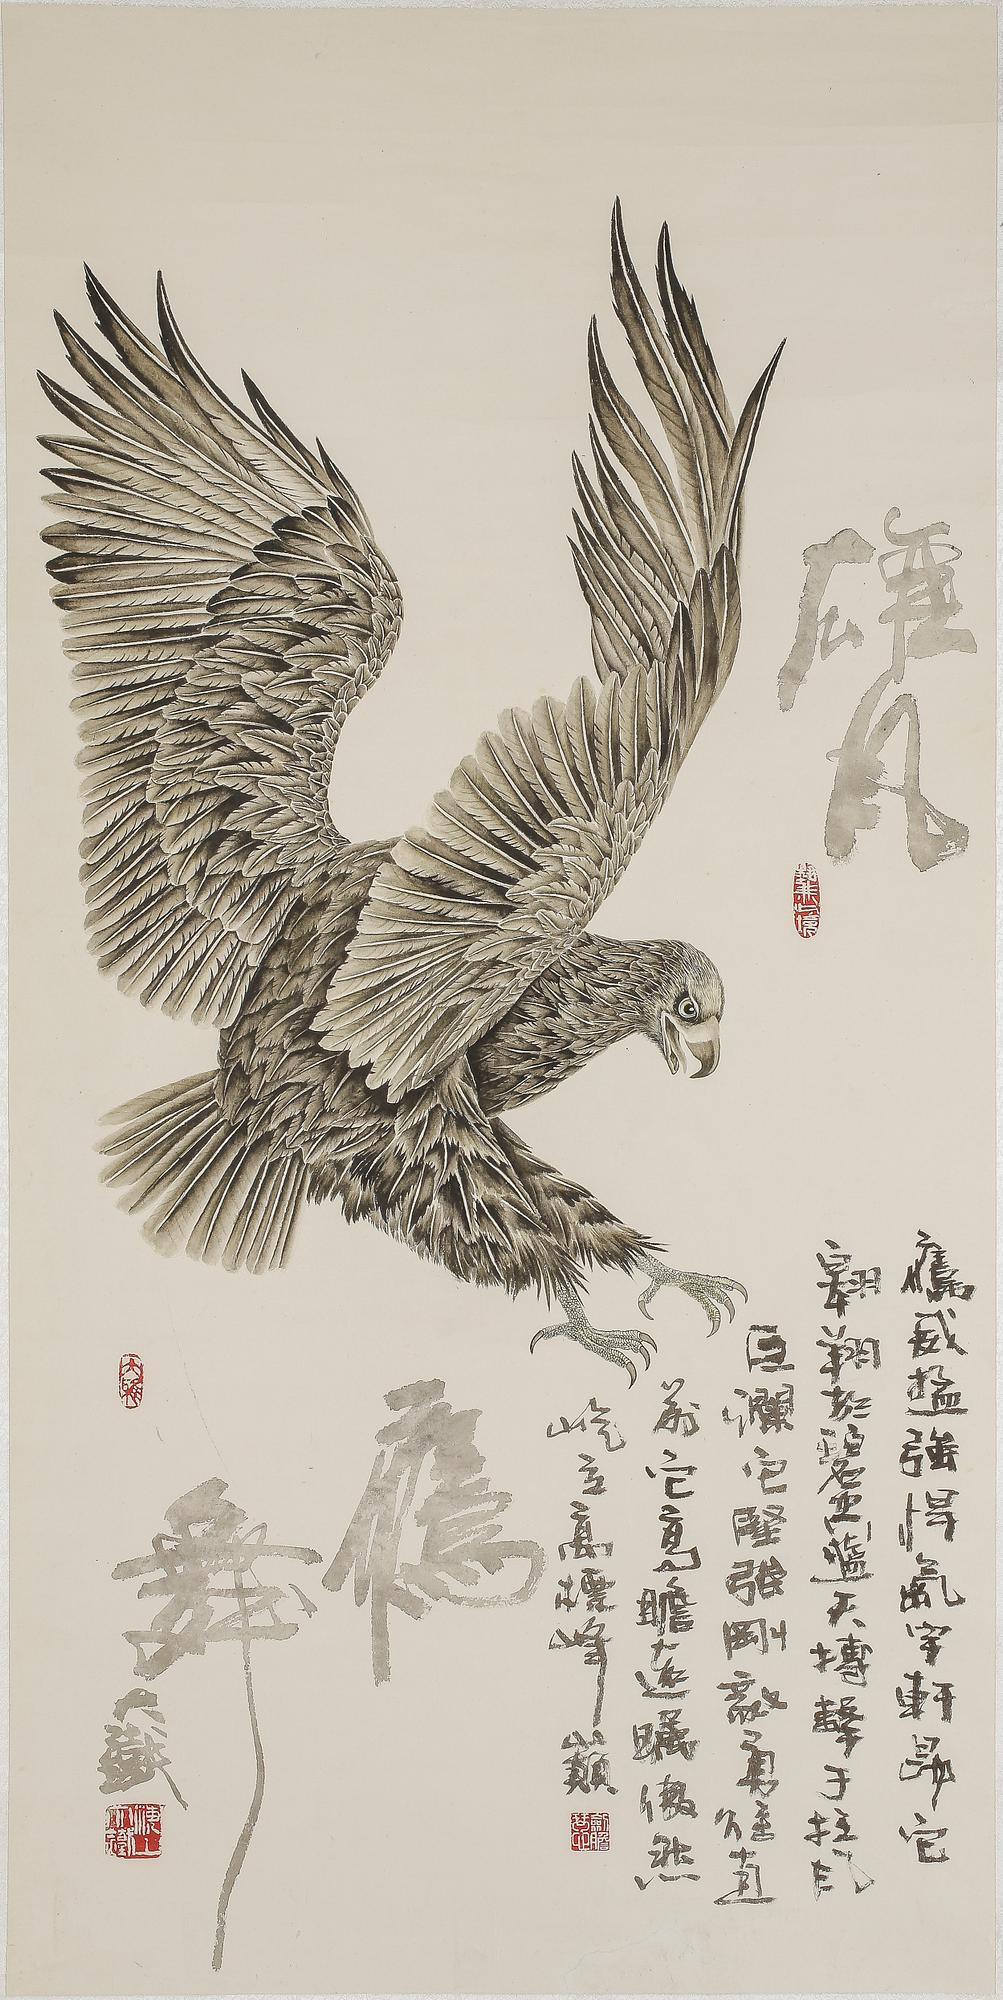 雄风
鷹威猛強悍氣宇軒昂它
翱翔於碧空藍天搏擊于狂风
巨瀾它堅強剛毅勇往直
前它高瞻遠矚傲然
屹立高標峰巔
鷹
舞
大嶽
大雅